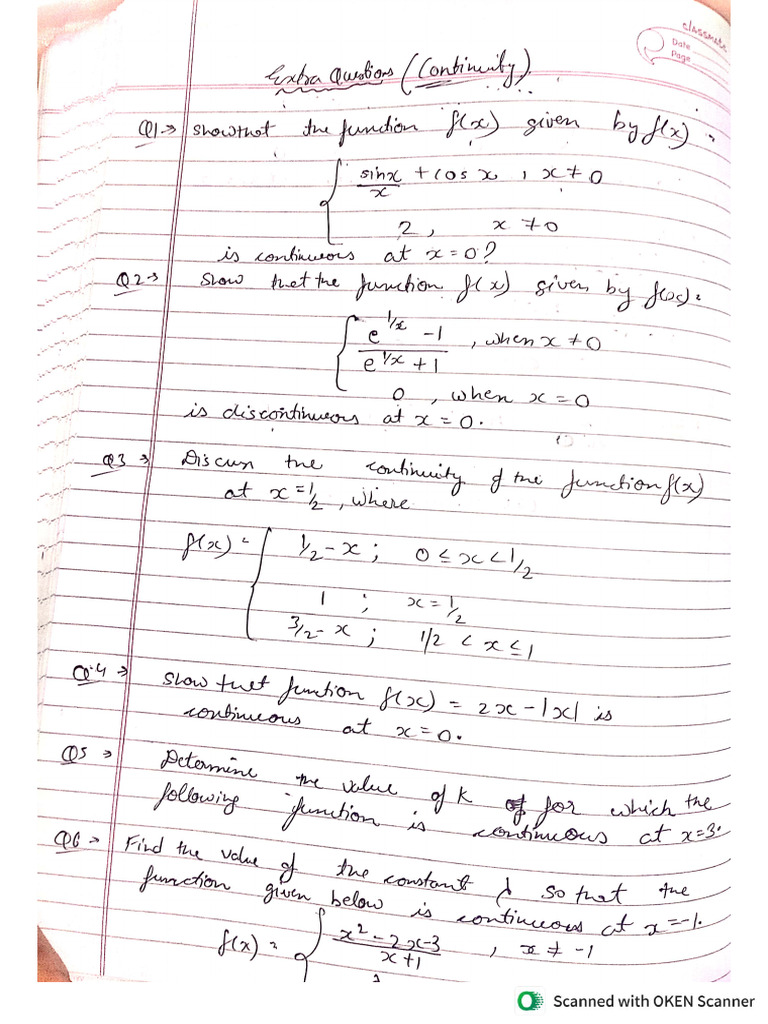 classmate
Date
Page
Extra Questions (Continuity).
Q1→ Show that the function f(x) given by f(x) =
sinx/x + cos x , x ≠ 0
2, x ≠ 0
is continuous at x = 0?
Q2→ Show that the function f(x) given by f(x) =
e^1/x - 1 / e^1/x + 1 , when x ≠ 0
0 , when x = 0
is discontinuous at x = 0.
Q3→ Discuss the continuity of the function f(x)
at x = 1/2, where
f(x) = 1/2 - x ; 0 ≤ x < 1/2
1 ; x = 1/2
3/2 - x ; 1/2 < x ≤ 1
Q.4→ Show that function f(x) = 2x - |x| is
continuous at x = 0.
Q5→ Determine the value of K of for which the
following function is continuous at x=3.
Q6→ Find the value of the constant λ so that the
function given below is continuous at x = -1.
f(x) = x² - 2x - 3 / x + 1 , x ≠ -1
Scanned with OKEN Scanner